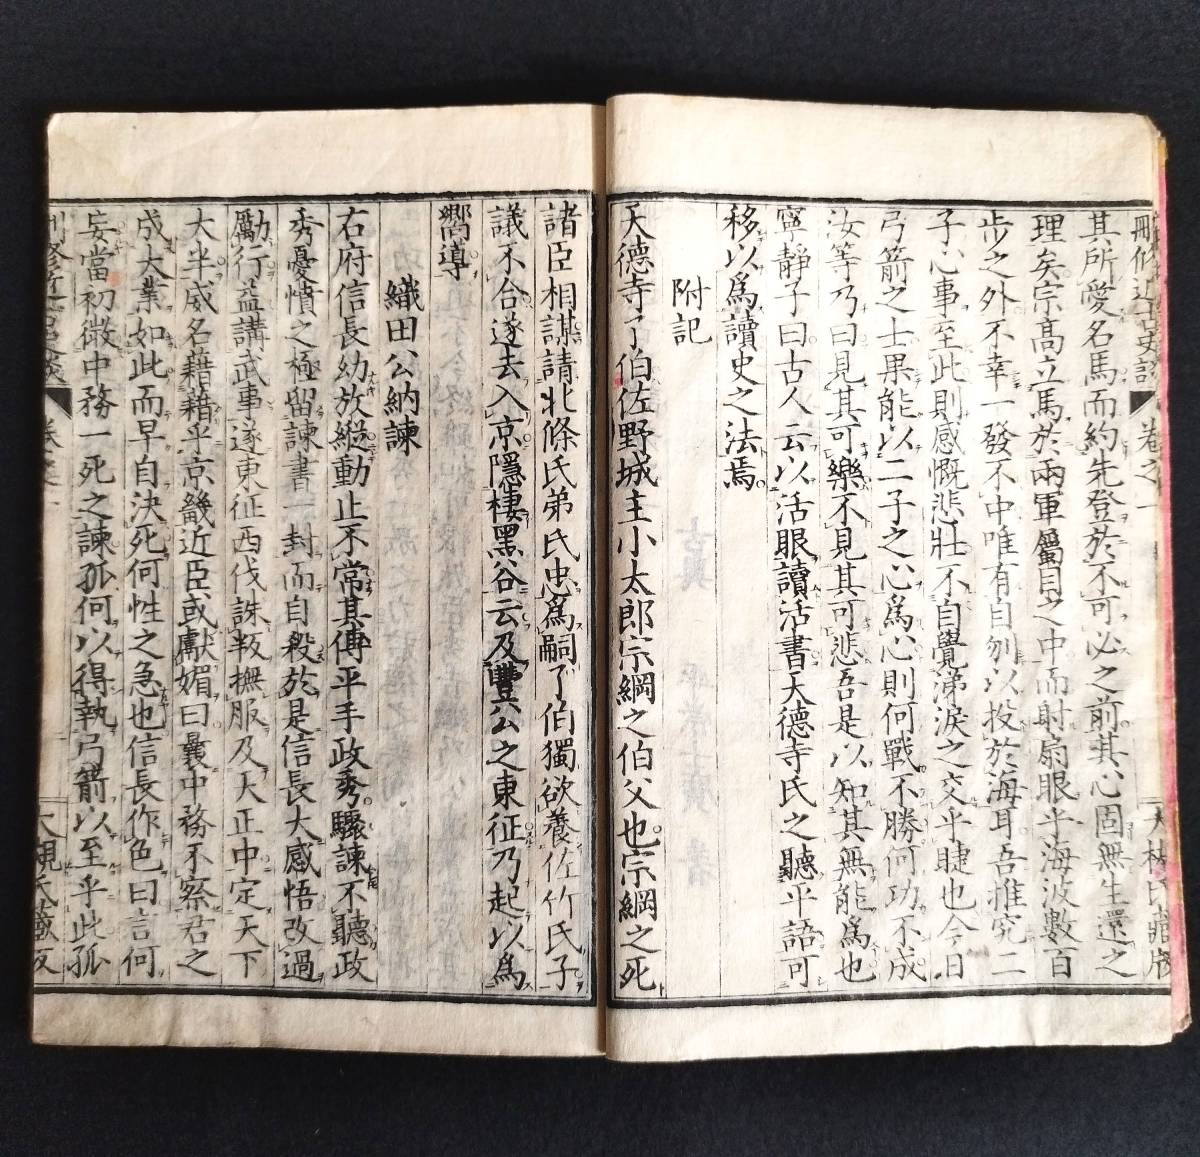 刪修近古史談 卷之一 大槻氏藏版
其所愛名馬而約先登於不可必之前其心固無生還之
理矣宗高立馬於兩軍屬目之中而射扇眼乎海波數百
步之外不幸一發不中唯有自刎以投於海耳吾推究二
子心事至此則感慨悲壯不自覺涕淚之交乎睫也今日
弓箭之士果能以二子之心為心則何戰不勝何功不成
汝等乃曰見其可樂不見其可悲吾是以知其無能為也
寧靜子曰古人云以活眼讀活書天德寺氏之聽平語可
移以為讀史之法焉
附記
天德寺了伯佐野城主小太郎宗綱之伯父也宗綱之死
諸臣相謀請北條氏弟氏忠為嗣了伯獨欲養佐竹氏子
議不合遂去入京隱棲黑谷云及豐公之東征乃起以為
嚮導
織田公納諫
右府信長幼放縱動止不常其傅平手政秀驟諫不聽政
秀憂憤之極留諫書一封而自殺於是信長大感悟改過
勵行益講武事遂東征西伐誅叛撫服及天正中定天下
大半威名藉藉乎京畿近臣或獻媚曰曩中務不察君之
成大業如此而早自決死何性之急也信長作色曰言何
妄當初微中務一死之諫孤何以得執弓箭以至乎此孤
刪修近古史談 卷之一 大槻氏藏版